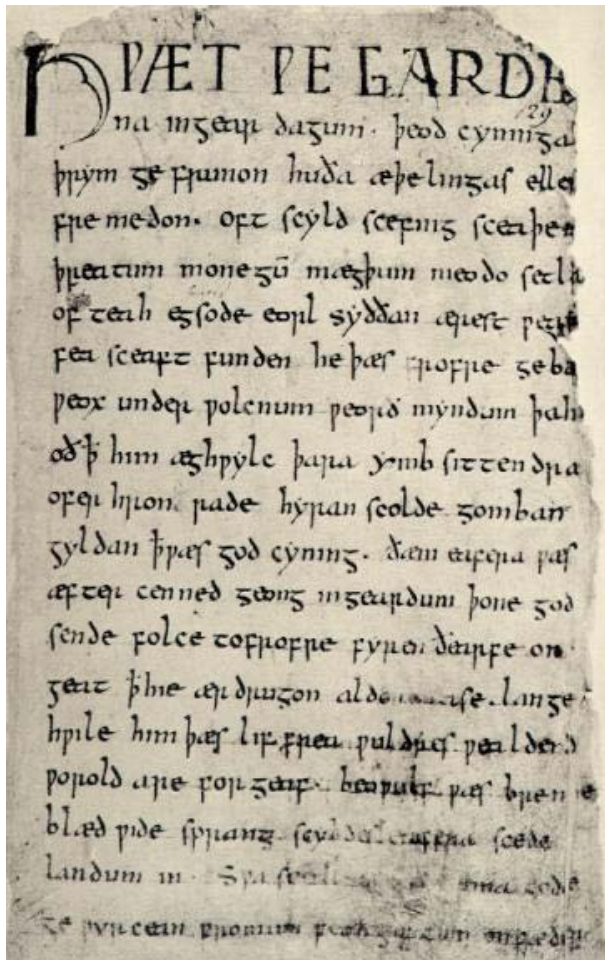 HǷÆT ǷE GARDE
129
na ingear dagum. þeod cyninga
þrym ge frunon huða æþelingas elle
fre medon. oft scyld scefing sceaþe
þreatum monegū mægþum meodo setla
of teah egsode eorl syððan ærest ƿear
fea sceaft funden he þæs frofre geba
ƿeox under ƿolcnum ƿeorð myndum þah
oð ꝥ him æghƿylc þara ymb sittendra
ofer hron rade hyran scolde gomban
gyldan ꝥ ƿæs god cyning. ðæm eafera ƿæs
æfter cenned geong ingeardum þone god
sende folce tofrofre fyren ðearfe on
geat ꝥ hie ær drugon aldor ase. lange
hƿile him þæs lif frea ƿuldres ƿealdend
ƿorold are for geaf. beoƿulf ƿæs breme
blæd ƿide sprang scyldes eafera scede
landum in. Sƿa gode
ge ƿyrcean fromum feoh giftum